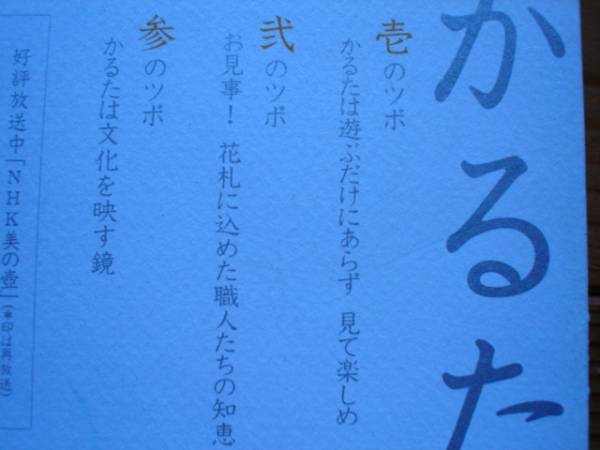 かるた
壱のツボ
かるたは遊ぶだけにあらず 見て楽しめ
弐のツボ
お見事！ 花札に込めた職人たちの知恵
参のツボ
かるたは文化を映す鏡
好評放送中「NHK美の壺」(＊印は再放送)